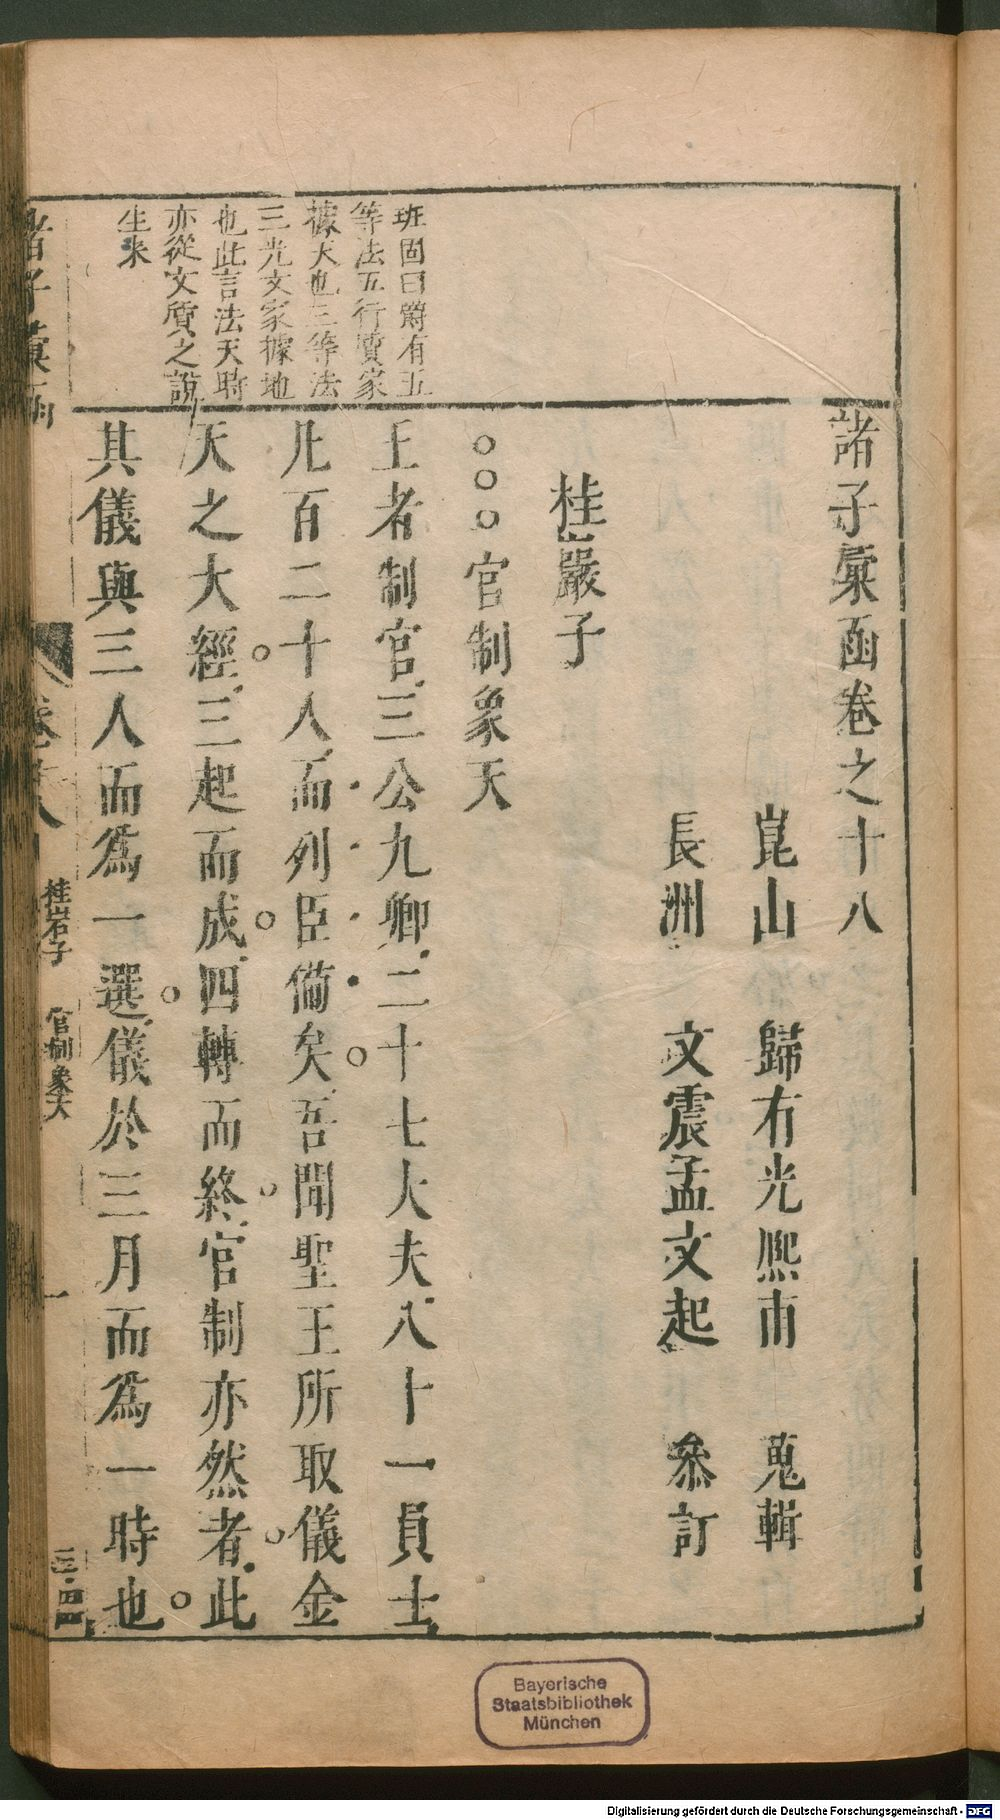 諸子彙函卷之十八
崑山 歸有光熙甫 蒐輯
長洲 文震孟文起 叅訂
桂巖子
○○○官制象天
王者制官三公九卿二十七大夫八十一員士
凡百二十人而列臣備矣吾聞聖王所取儀金
天之大經三起而成四轉而終官制亦然者此
其儀與三人而爲一選儀於三月而爲一時也
班固曰爵有五
等法五行質家
據天也三等法
三光文家據地
也此言法天時
亦從文質之說
生來
諸子彙函
卷十八
桂岩子 官制象天
一
Bayerische
Staatsbibliothek
München
Digitalisierung gefördert durch die Deutsche Forschungsgemeinschaft - DFG